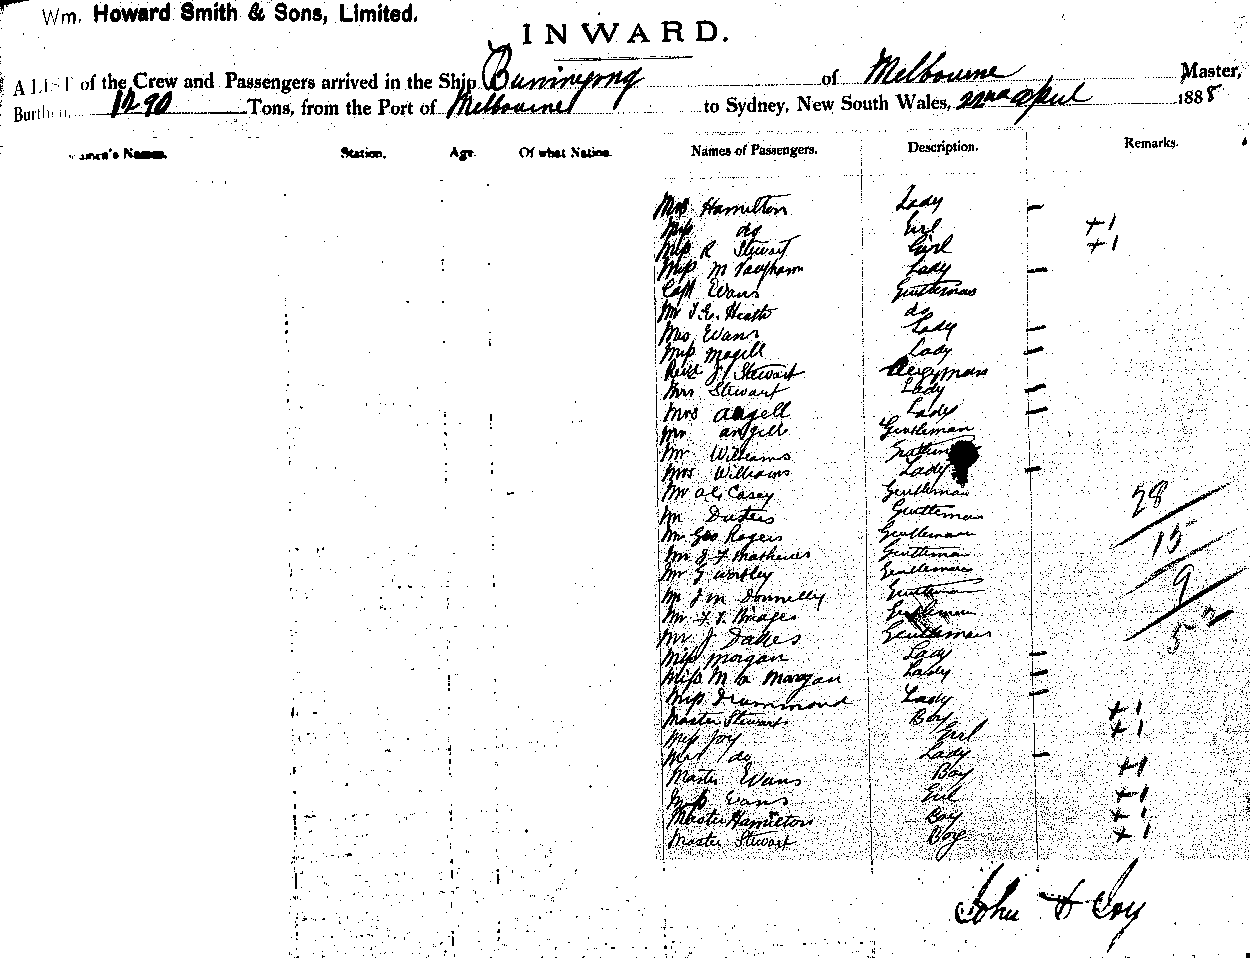 Wm. Howard Smith & Sons, Limited.
INWARD.
A LIST of the Crew and Passengers arrived in the Ship Buninyong of Melbourne Master,
Burthen, 1290 Tons, from the Port of Melbourne to Sydney, New South Wales, 22nd April 1888
Names. Station. Age. Of what Nation. Names of Passengers. Description. Remarks.
Mrs Hamilton Lady –
Miss do Girl +1
Miss R Stewart Girl +1
Miss M Vaugham Lady –
Capt Evans Gentleman
Mr J.E. Heath do
Mrs Evans Lady –
Miss Magill Lady –
Revd J Stewart Clergyman
Mrs Stewart Lady –
Mrs Angell Lady –
Mr Angell Gentleman
Mr Williams
Mrs Williams Lady –
Mr Casey Gentleman
Mr Gentleman
Mr Geo Rogers Gentleman
Mr J F Mathews Gentleman
Mr G Wortley Gentleman
Mr J M Donnelly Gentleman
Mr Bridges Gentleman
Mr J Gentleman
Miss Morgan Lady –
Miss M Morgan Lady –
Miss Drummond Lady –
Master Stewart Boy +1
Miss Joy Girl +1
do Lady –
Master Evans Boy +1
Miss Evans Girl +1
Master Hamilton Boy +1
Master Stewart Boy +1
28
15
9
52
John H Joy